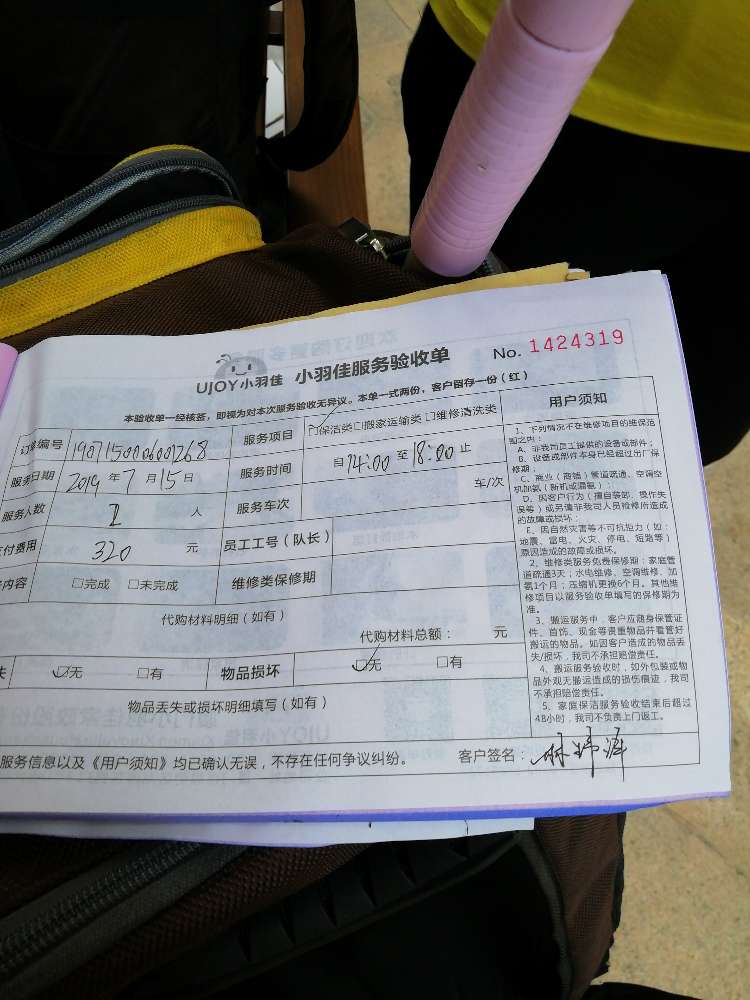 UJOY小羽佳 小羽佳服务验收单 No. 1424319
本验收单一经核签，即视为对本次服务验收无异议。本单一式两份，客户留存一份（红）
订单编号 1907150006001268 服务项目 ☑保洁类□搬家运输类 □维修清洗类
服务日期 2019年7月15日 服务时间 自14:00至18:00止
服务人数 1 人 服务车次 车/次
付费用 320 元 员工工号（队长）
内容 □完成 □未完成 维修类保修期
代购材料明细（如有）
代购材料总额： 元
失 ☑无 □有 物品损坏 ☑无 □有
物品丢失或损坏明细填写（如有）
服务信息以及《用户须知》均已确认无误，不存在任何争议纠纷。 客户签名：
用户须知
1、下列情况不在维修项目的维保范
围之内：
A、非我司员工提供的设备或部件；
B、设备或部件本身已经超过出厂保
修期；
C、商业（商铺）管道疏通、空调空
机加氨（新机或漏氨）；
D、因客户行为（擅自装卸、操作失
误等）或另请非我司人员检修所造成
的故障或损坏；
E、因自然灾害等不可抗拒力（如：
地震、雷电、火灾、停电、短路等）
原因造成的故障或损坏。
2、维修类服务免费保修期：家庭管
道疏通3天；水电维修、空调维修、加
氨1个月；压缩机更换6个月。其他维
修项目以服务验收单填写的保修期为
准。
3、搬运服务中，客户应随身保管证
件、首饰、现金等贵重物品并看管好
搬运的物品。如因客户造成的物品丢
失/损坏，我司不承担赔偿责任。
4、搬运服务验收时，如外包装或物
品外观无搬运造成的损伤痕迹，我司
不承担赔偿责任。
5、家庭保洁服务验收结束后超过
48小时，我司不负责上门返工。